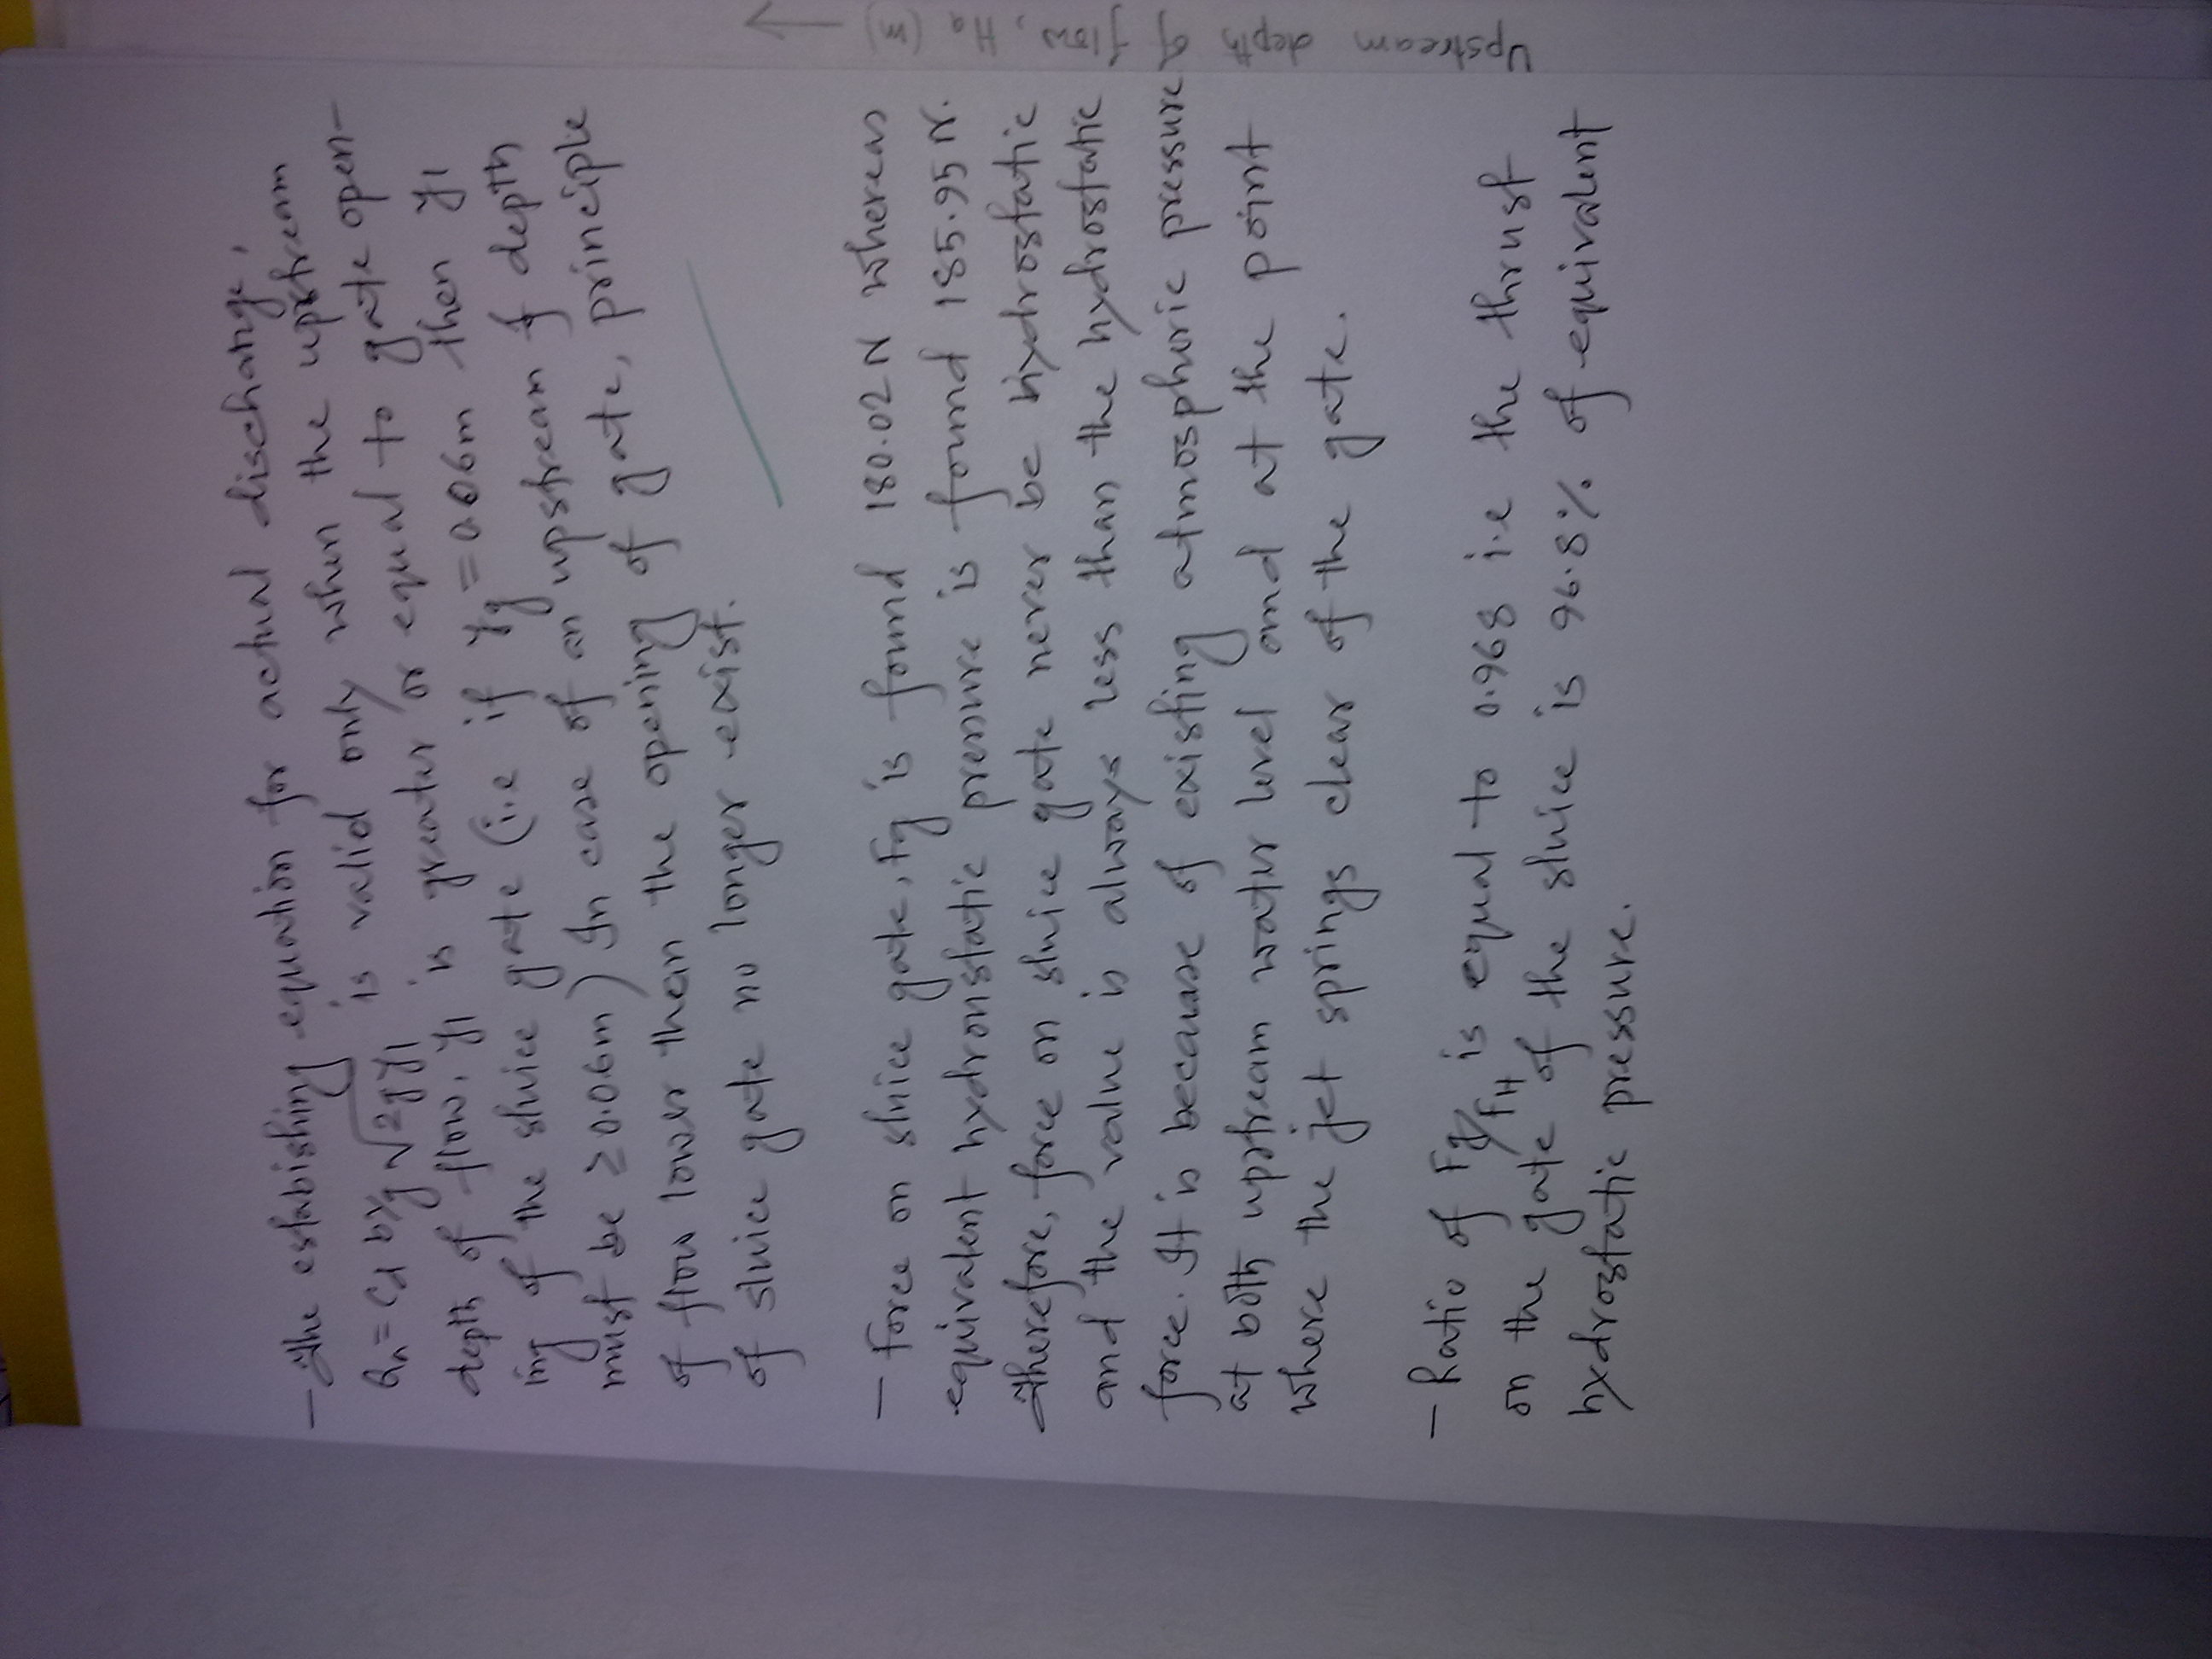 - The estabishing equation for actual discharge,
Qa = Cd b Yg √2gY1 is valid only when the upstream
depth of flow, Y1 is greater or equal to gate open-
ing of the sluice gate (i.e if Yg = 0.06m then Y1
must be ≥ 0.06m) In case of an upstream of depth
of flow lower then the opening of gate, principle
of sluice gate no longer exist.
- Force on sluice gate, Fg is found 180.02 N whereas
equivalent hydronstatic pressure is found 185.95 N.
Therefore, force on sluice gate never be hydrostatic
and the value is always less than the hydrostatic
force. It is because of existing atmosphoric pressure
at both upstream water level and at the point
where the jet springs clear of the gate.
- Ratio of Fg/FH is equal to 0.968 i.e the thrust
on the gate of the sluice is 96.8% of equivalent
hydrostatic pressure.
Upstream depth of flow, Ha (m) →